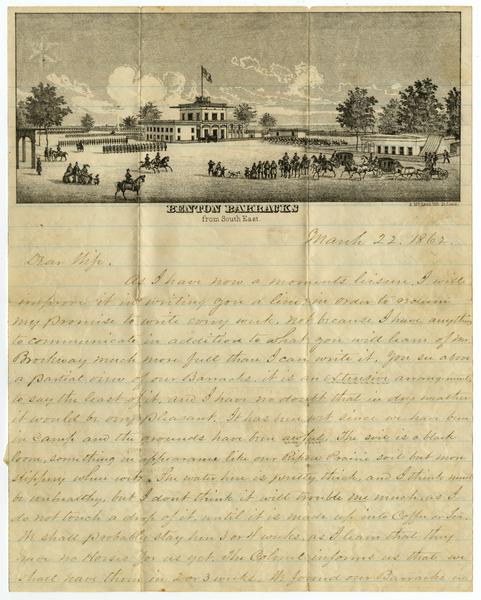 BENTON BARRACKS
from South East.
March 22. 1862.
Dear Wife.
As I have now a moments leisure I will
improve it in writing you a line in order to redeem
my promise to write every week, not because I have anything
to communicate in addition to what you will learn of Mr.
Brockway much more full than I can write it. You see above
a partial view of our Barracks. it is an extensive arrangement,
to say the least of it, and I have no doubt that in dry weather
it would be very pleasant. It has been wet since we have been
in camp and the grounds have been awful. The soil is a black
loom, something in appearance like our Prairie soil but more
slippery when wet. The water here is pretty thick, and I think must
be unhealthy, but I dont think it will trouble me much, as I
do not touch a drop of it, until it is made up into Coffee or Tea.
We shall probably stay here 3 or 4 weeks, as I learn that they
have no Horses for us yet. The Colonel informs us that we
shall have them in 2 or 3 weeks. We found our Barracks in